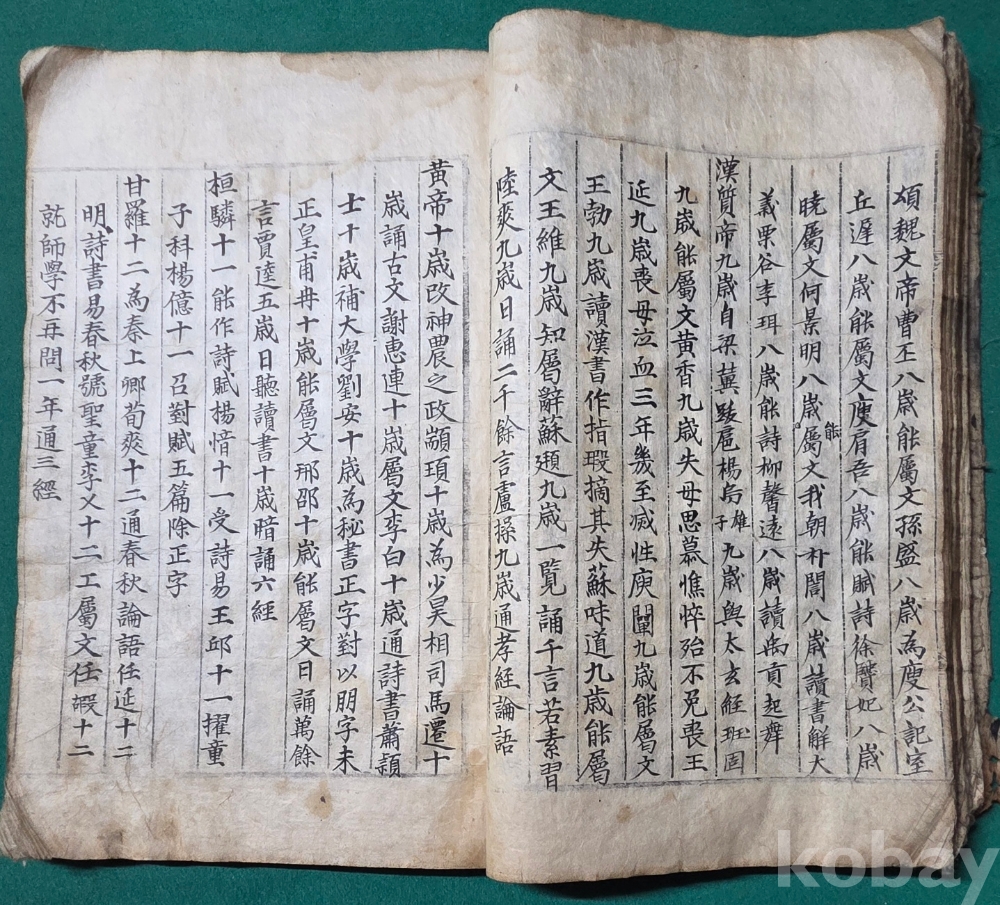 頌魏文帝曹丕八歲能屬文孫盛八歲為庾公記室
丘遲八歲能屬文庾肩吾八歲能賦詩徐賢妃八歲
曉屬文何景明八歲能屬文我朝朴誾八歲讀書解大
義栗谷李珥八歲能詩柳馨遠八歲讀禹貢起舞
漢質帝九歲自梁冀跋扈楊烏雄子九歲與太玄經班固
九歲能屬文黃香九歲失母思慕憔悴殆不免喪王
延九歲喪母泣血三年幾至滅性庾闡九歲能屬文
王勃九歲讀漢書作指瑕摘其失蘇味道九歲能屬
文王維九歲知屬辭蘇頲九歲一覽誦千言若素習
陸爽九歲日誦二千餘言盧操九歲通孝經論語
黃帝十歲改神農之政顓頊十歲為少昊相司馬遷十
歲誦古文謝惠連十歲屬文李白十歲通詩書蕭穎
士十歲補大學劉安十歲為秘書正字對以朋字未
正皇甫冉十歲能屬文邢邵十歲能屬文日誦萬餘
言賈逵五歲日聽讀書十歲暗誦六經
桓驎十一能作詩賦楊愔十一受詩易王邱十一擢童
子科楊億十一召對賦五篇除正字
甘羅十二為秦上卿荀爽十二通春秋論語任延十二
明詩書易春秋號聖童李乂十二工屬文任嘏十二
就師學不再問一年通三經
kobay